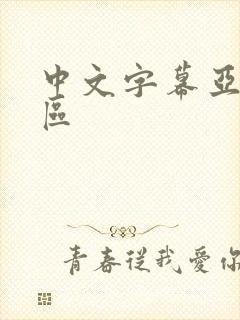 中文字幕亞
區
青春從我愛你